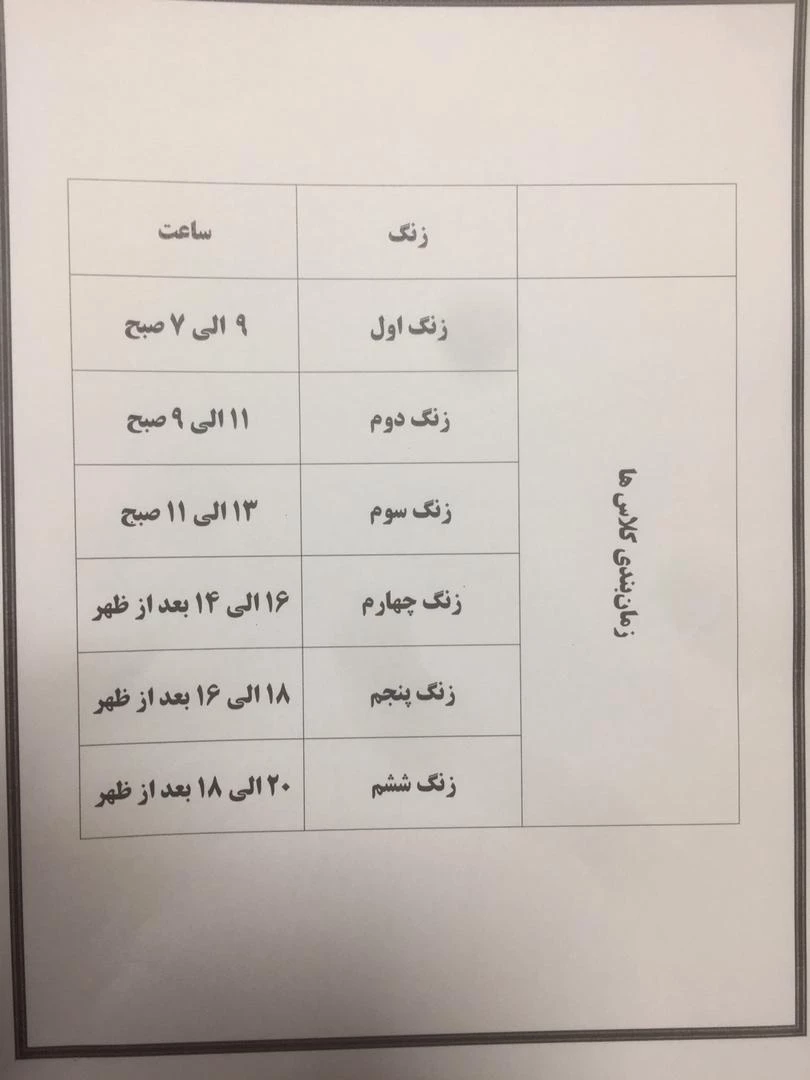 زنگ ساعت
زمان‌بندی کلاس ها
زنگ اول ۹ الی ۷ صبح
زنگ دوم ۱۱ الی ۹ صبح
زنگ سوم ۱۳ الی ۱۱ صبح
زنگ چهارم ۱۶ الی ۱۴ بعد از ظهر
زنگ پنجم ۱۸ الی ۱۶ بعد از ظهر
زنگ ششم ۲۰ الی ۱۸ بعد از ظهر